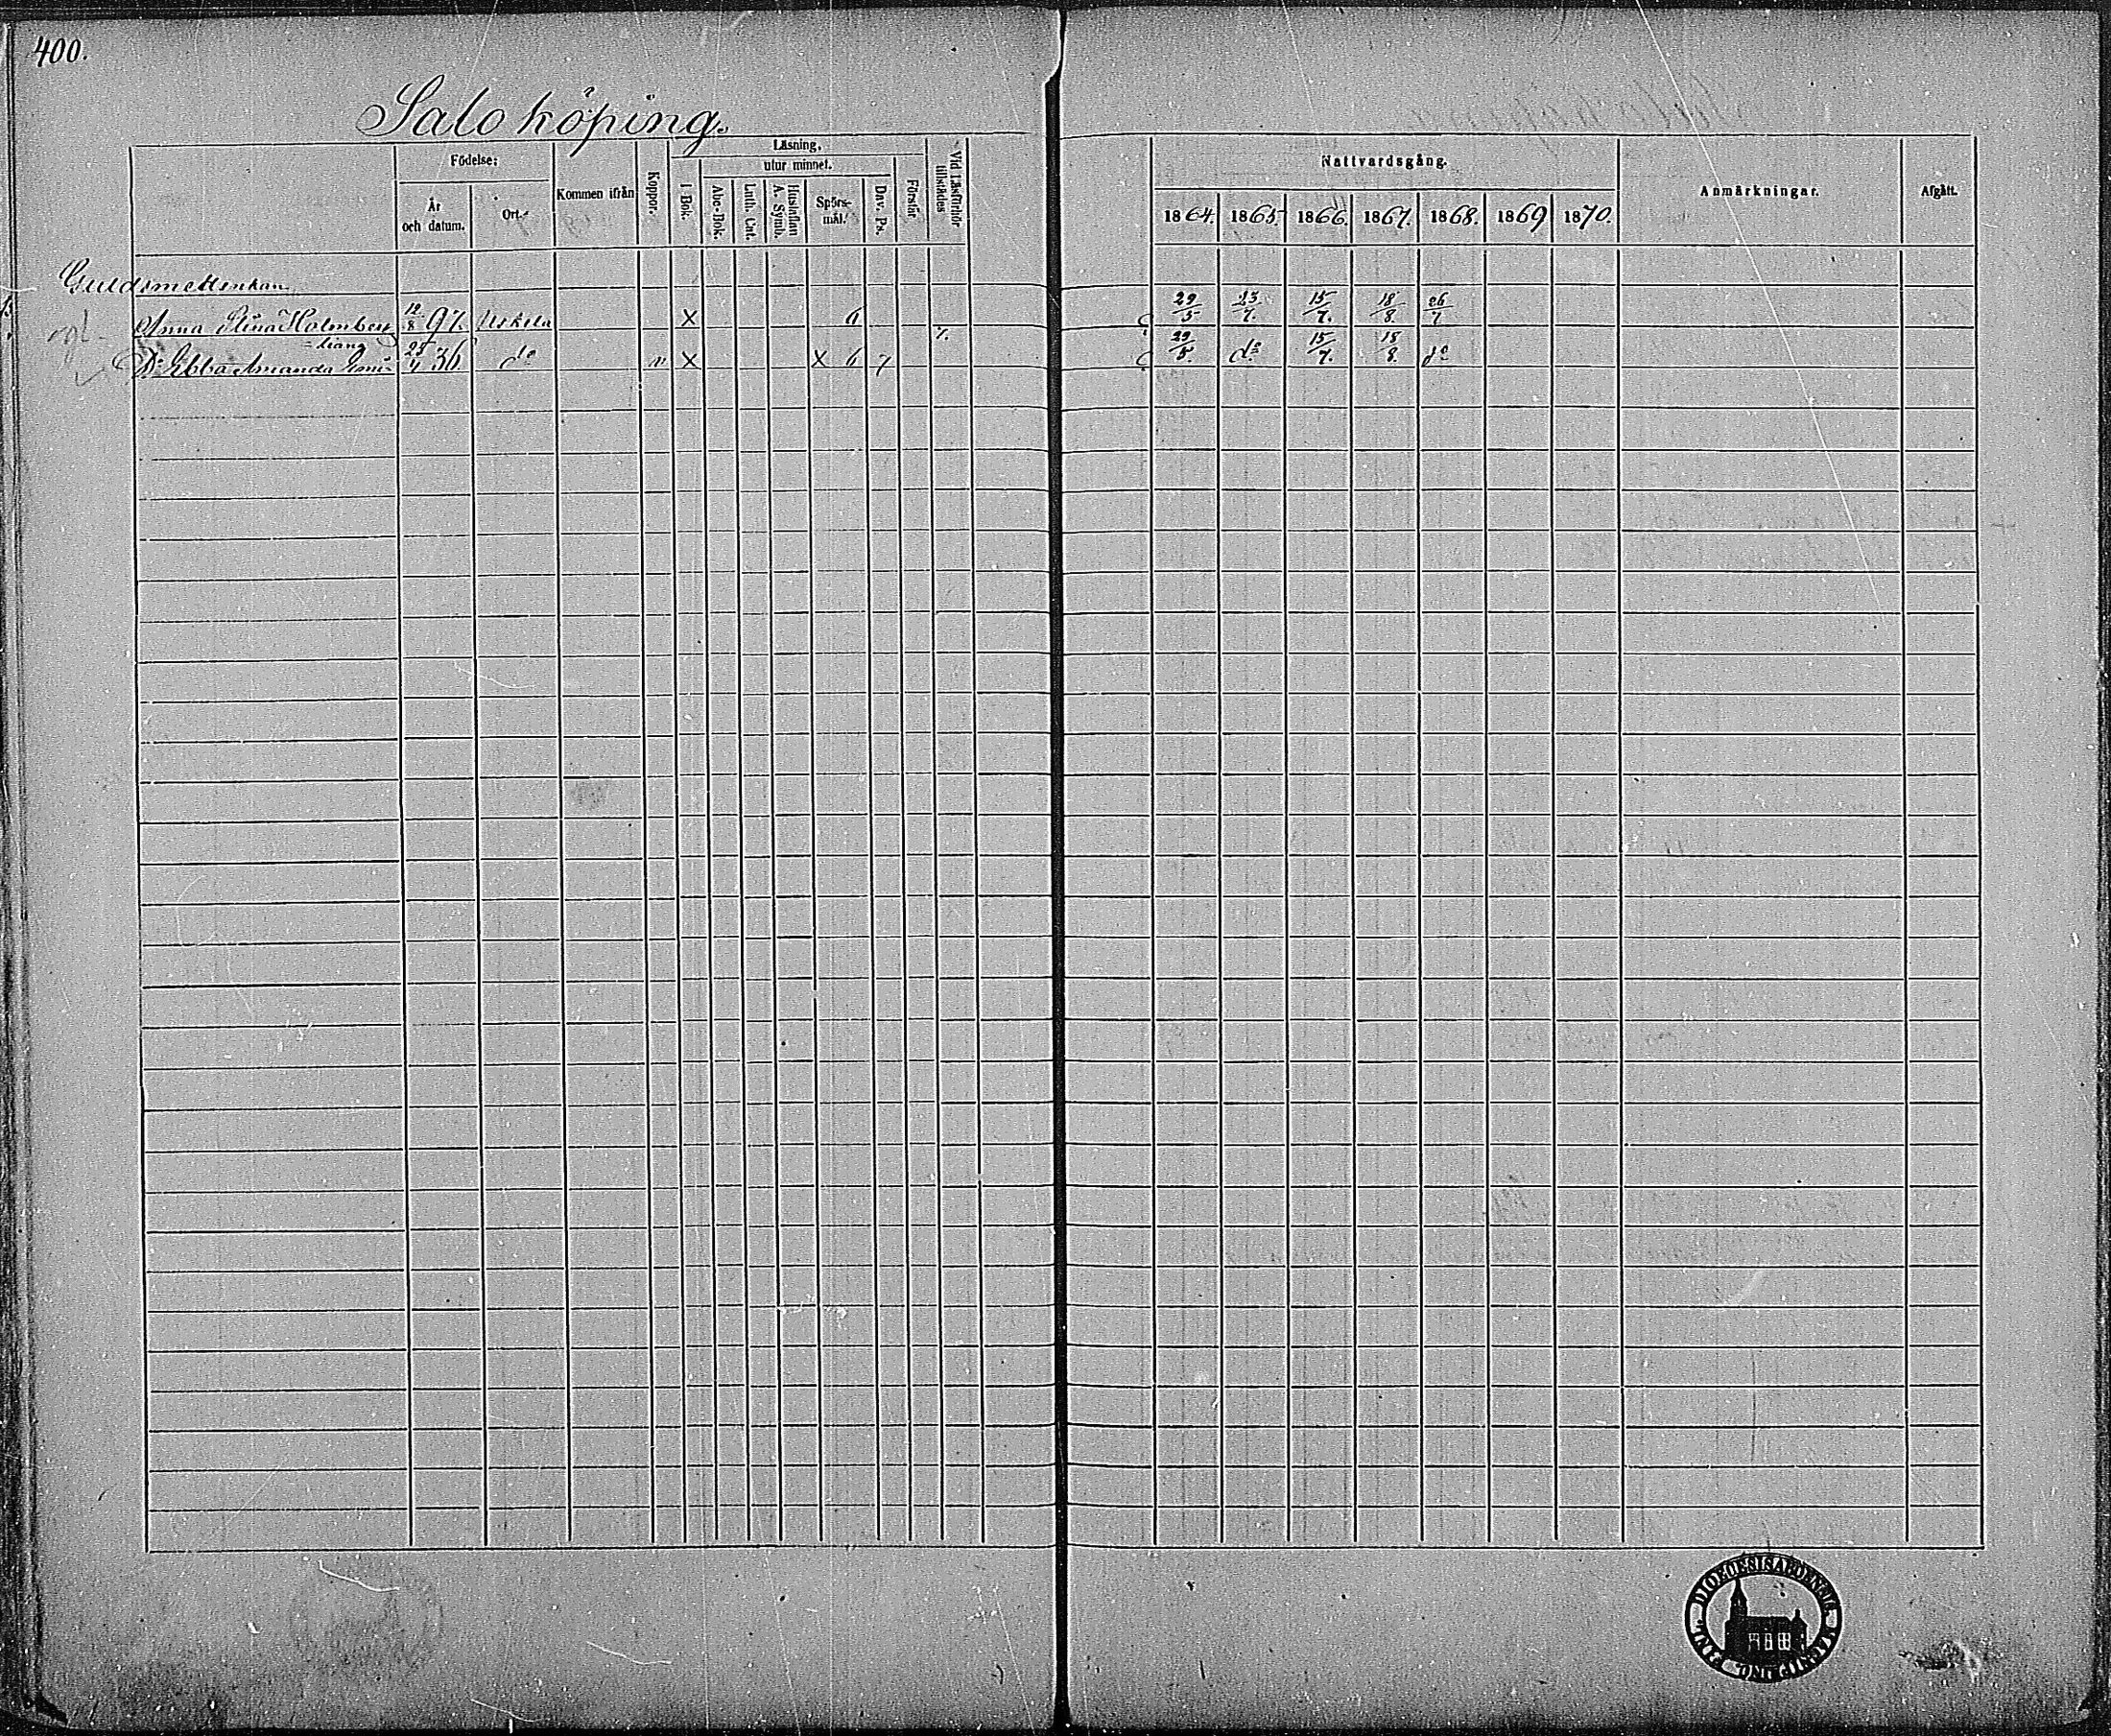 400.
Salo köping.
Födelse:
År och datum.
Ort.
Kommen ifrån
Koppor.
Läsning.
I Bok.
utur minnet.
Abc-Bok.
Luth. Cat.
Hustaflan A. Symb.
Spörs-mål.
Dav. Ps.
Förstår
Vid Läsförhör tillstädes
Nattvardsgång.
1864. 1865. 1866. 1867. 1868. 1869 1870.
Anmärkningar.
Afgått.
Guldsmedsenkan
Anna Stina Holmberg 12/8 97. Uskela X 6 29/5 23/7. 15/7. 18/8. 26/7
D: Ebba Amanda Emi- 4 36 do n X X 6 7 29/5 do 15/7. 18/8. do
= liana